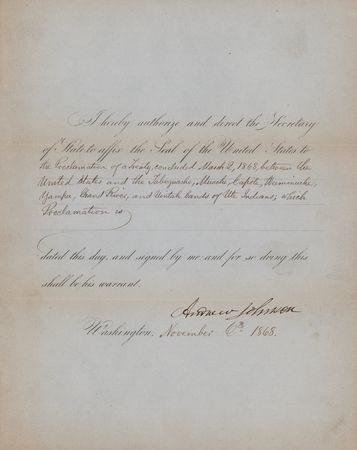 I hereby authorize and direct the Secretary
of State to affix the Seal of the United States to
the Proclamation of a Treaty concluded March 2, 1868, between the
United States and the Tabeguache, Muache, Capote, Weeminuche,
Yampa, Grand River, and Uintah bands of Ute Indians; which
Proclamation is
dated this day, and signed by me: and for so doing this
shall be his warrant.
Andrew Johnson
Washington, November 6th 1868.